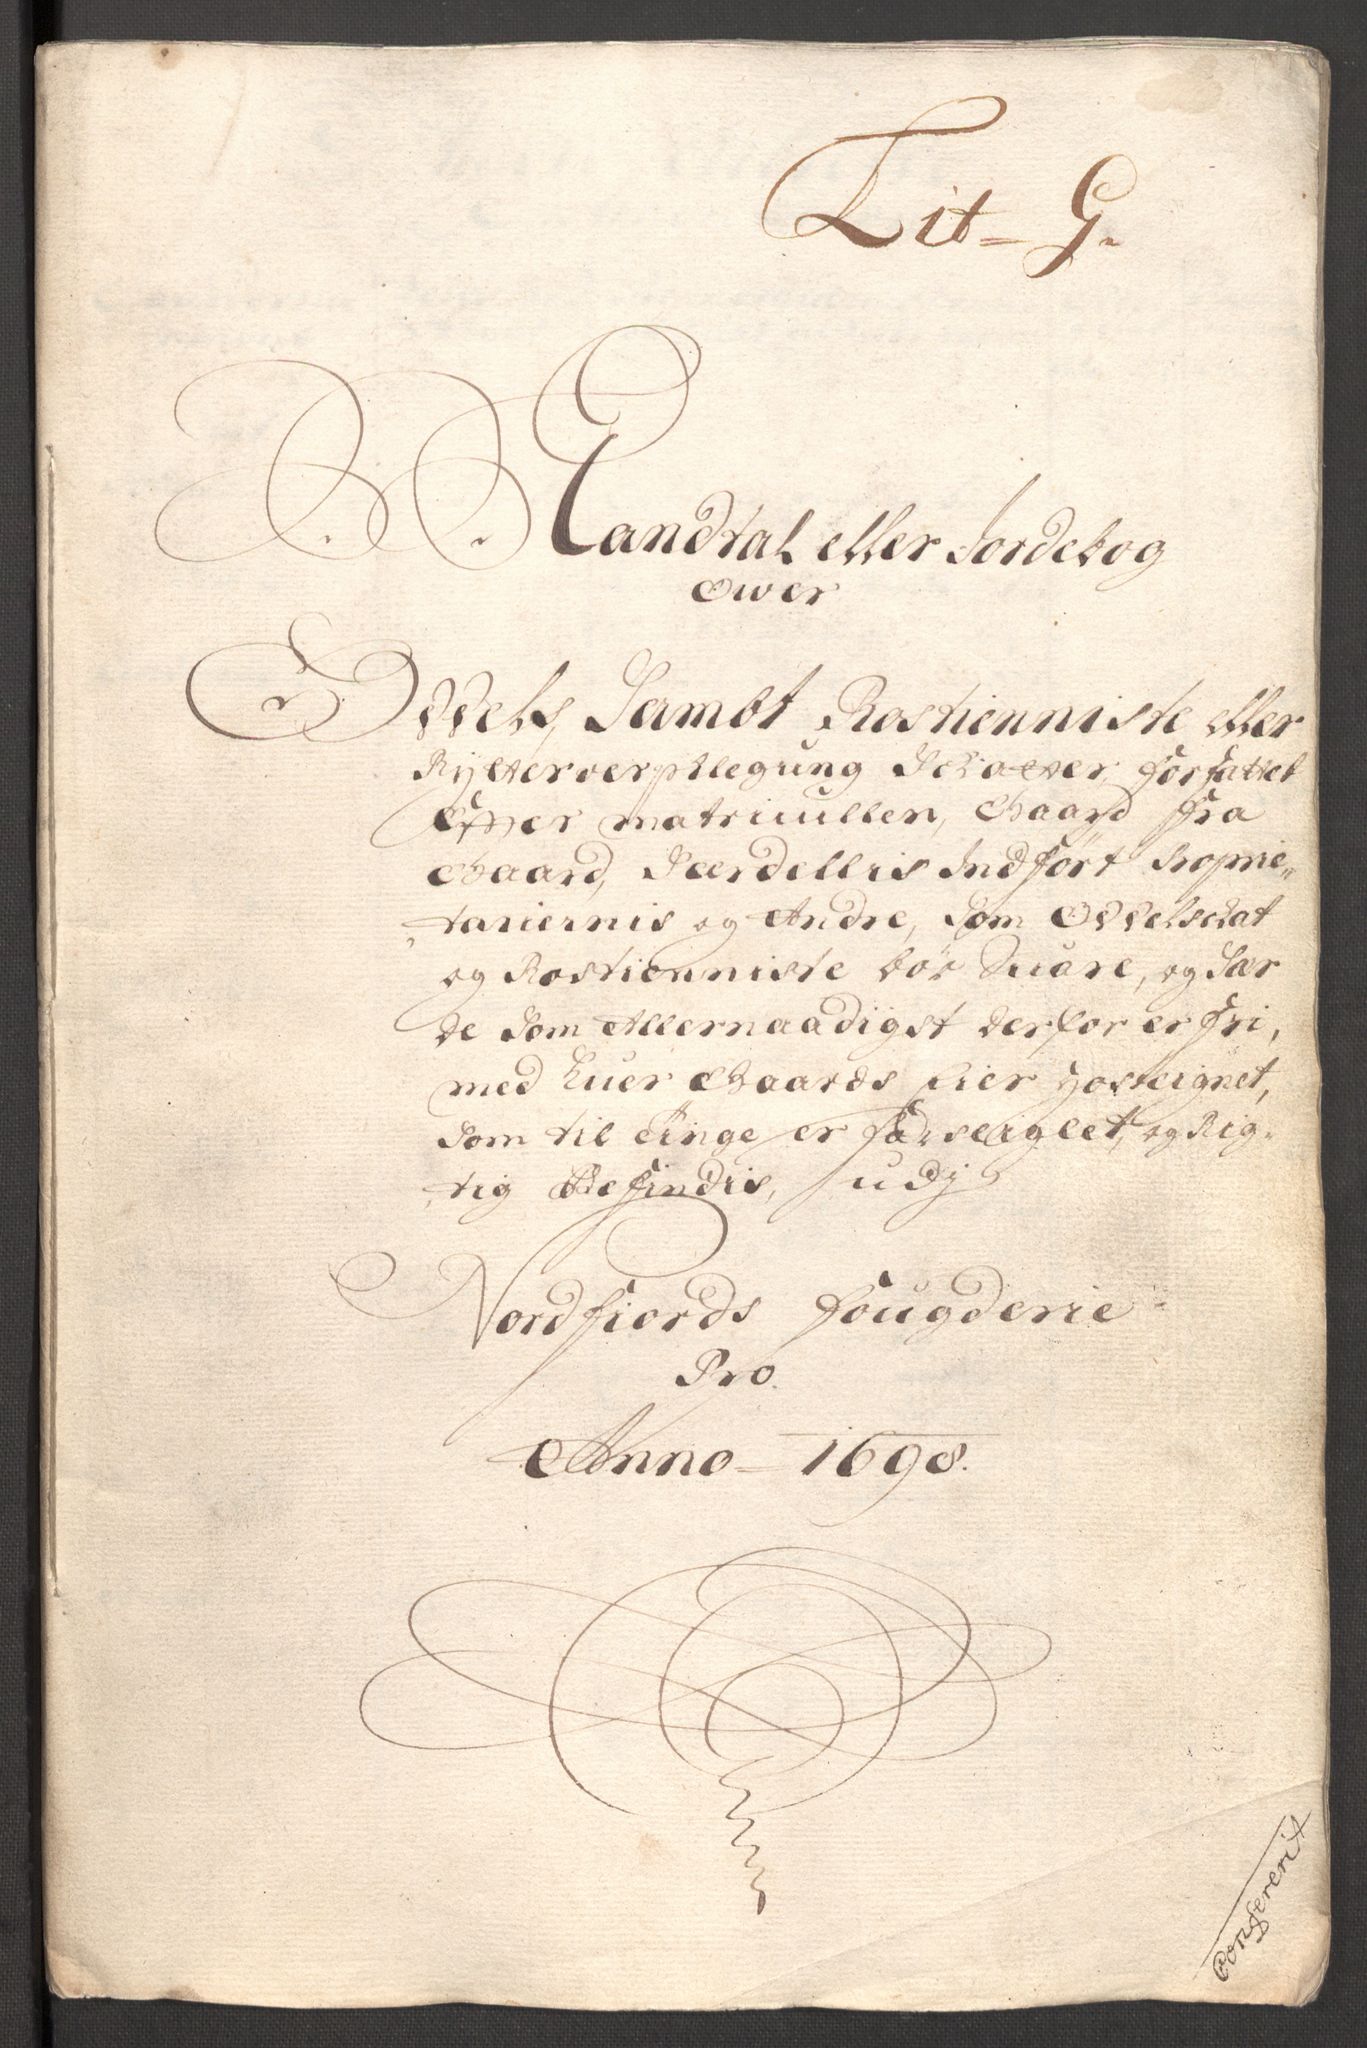 Lit= G.
Mandtal eller Jordebog
Ower
Oddels, Sambt Rostienniste eller
Rytterverpflegung Schatter, forfattet
Effter matricullen, Gaard fra
Gaard, Særdellis Indført Proprie„
tariernis og Andre, som Oddelschat
og Rostienniste bør Suare, og Sær
de som Allernaadigst derfor er fri,
med huer Gaards Eier hosteignet,
som til Tinge er forseiglet, og Rig„
tig Befindis, udj
Nordfiords Fougderie
Pro.
Anno – 1698.
Confererit